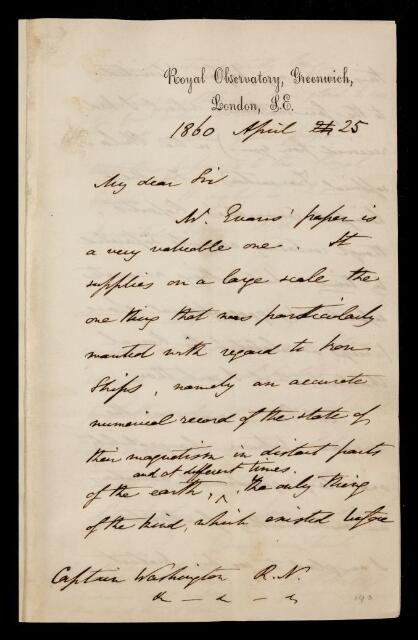 Royal Observatory, Greenwich,
London, S.E.
1860 April 25
My dear Sir
Mr. Evans' paper is
a very valuable one. It
supplies on a large scale the
one thing that was particularly
wanted with regard to Iron
Ships, namely an accurate
numerical record of the state of
their magnetism in distant parts
and at different times.
of the earth, ^ the only thing
of the kind, which existed before
Captain Washington R.N.